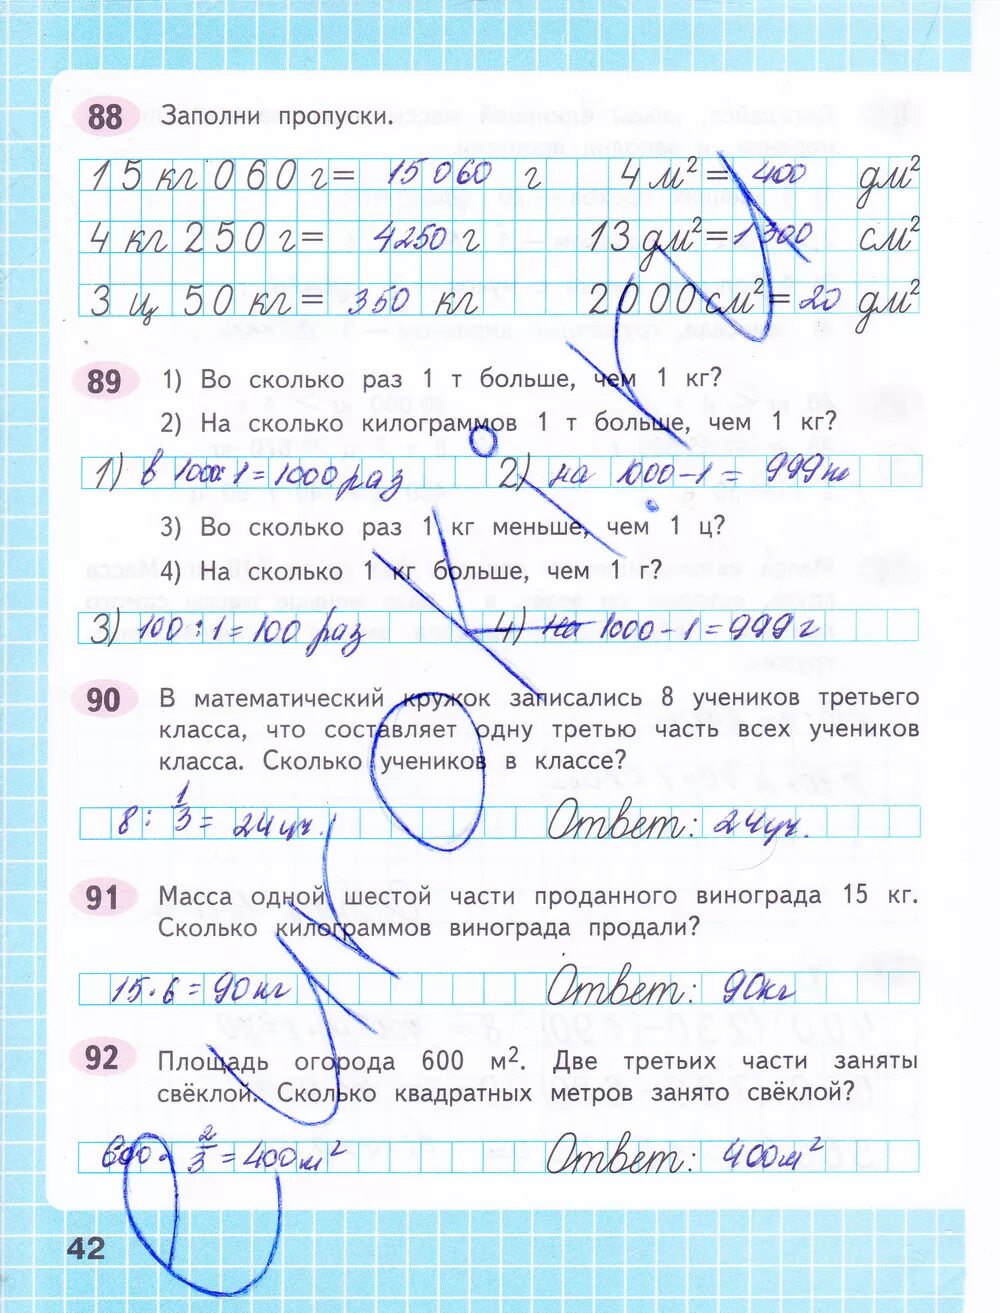 88 Заполни пропуски.
15 кг 060 г = 15 060 г 4 м² = 400 дм²
4 кг 250 г = 4250 г 13 дм² = 1300 см²
3 ц 50 кг = 350 кг 2000 см² = 20 дм²
89 1) Во сколько раз 1 т больше, чем 1 кг?
2) На сколько килограммов 1 т больше, чем 1 кг?
1) в 1000:1=1000 раз 2) на 1000-1=999
3) Во сколько раз 1 кг меньше, чем 1 ц?
4) На сколько 1 кг больше, чем 1 г?
3) 100:1=100 раз 4) на 1000-1=999 г
90 В математический кружок записались 8 учеников третьего
класса, что составляет одну третью часть всех учеников
класса. Сколько учеников в классе?
8 : 1/3 = 24 уч. Ответ: 24 уч.
91 Масса одной шестой части проданного винограда 15 кг.
Сколько килограммов винограда продали?
15·6=90 кг Ответ: 90 кг
92 Площадь огорода 600 м². Две третьих части заняты
свёклой. Сколько квадратных метров занято свёклой?
600· 2/3 = 400 м² Ответ: 400 м²
42